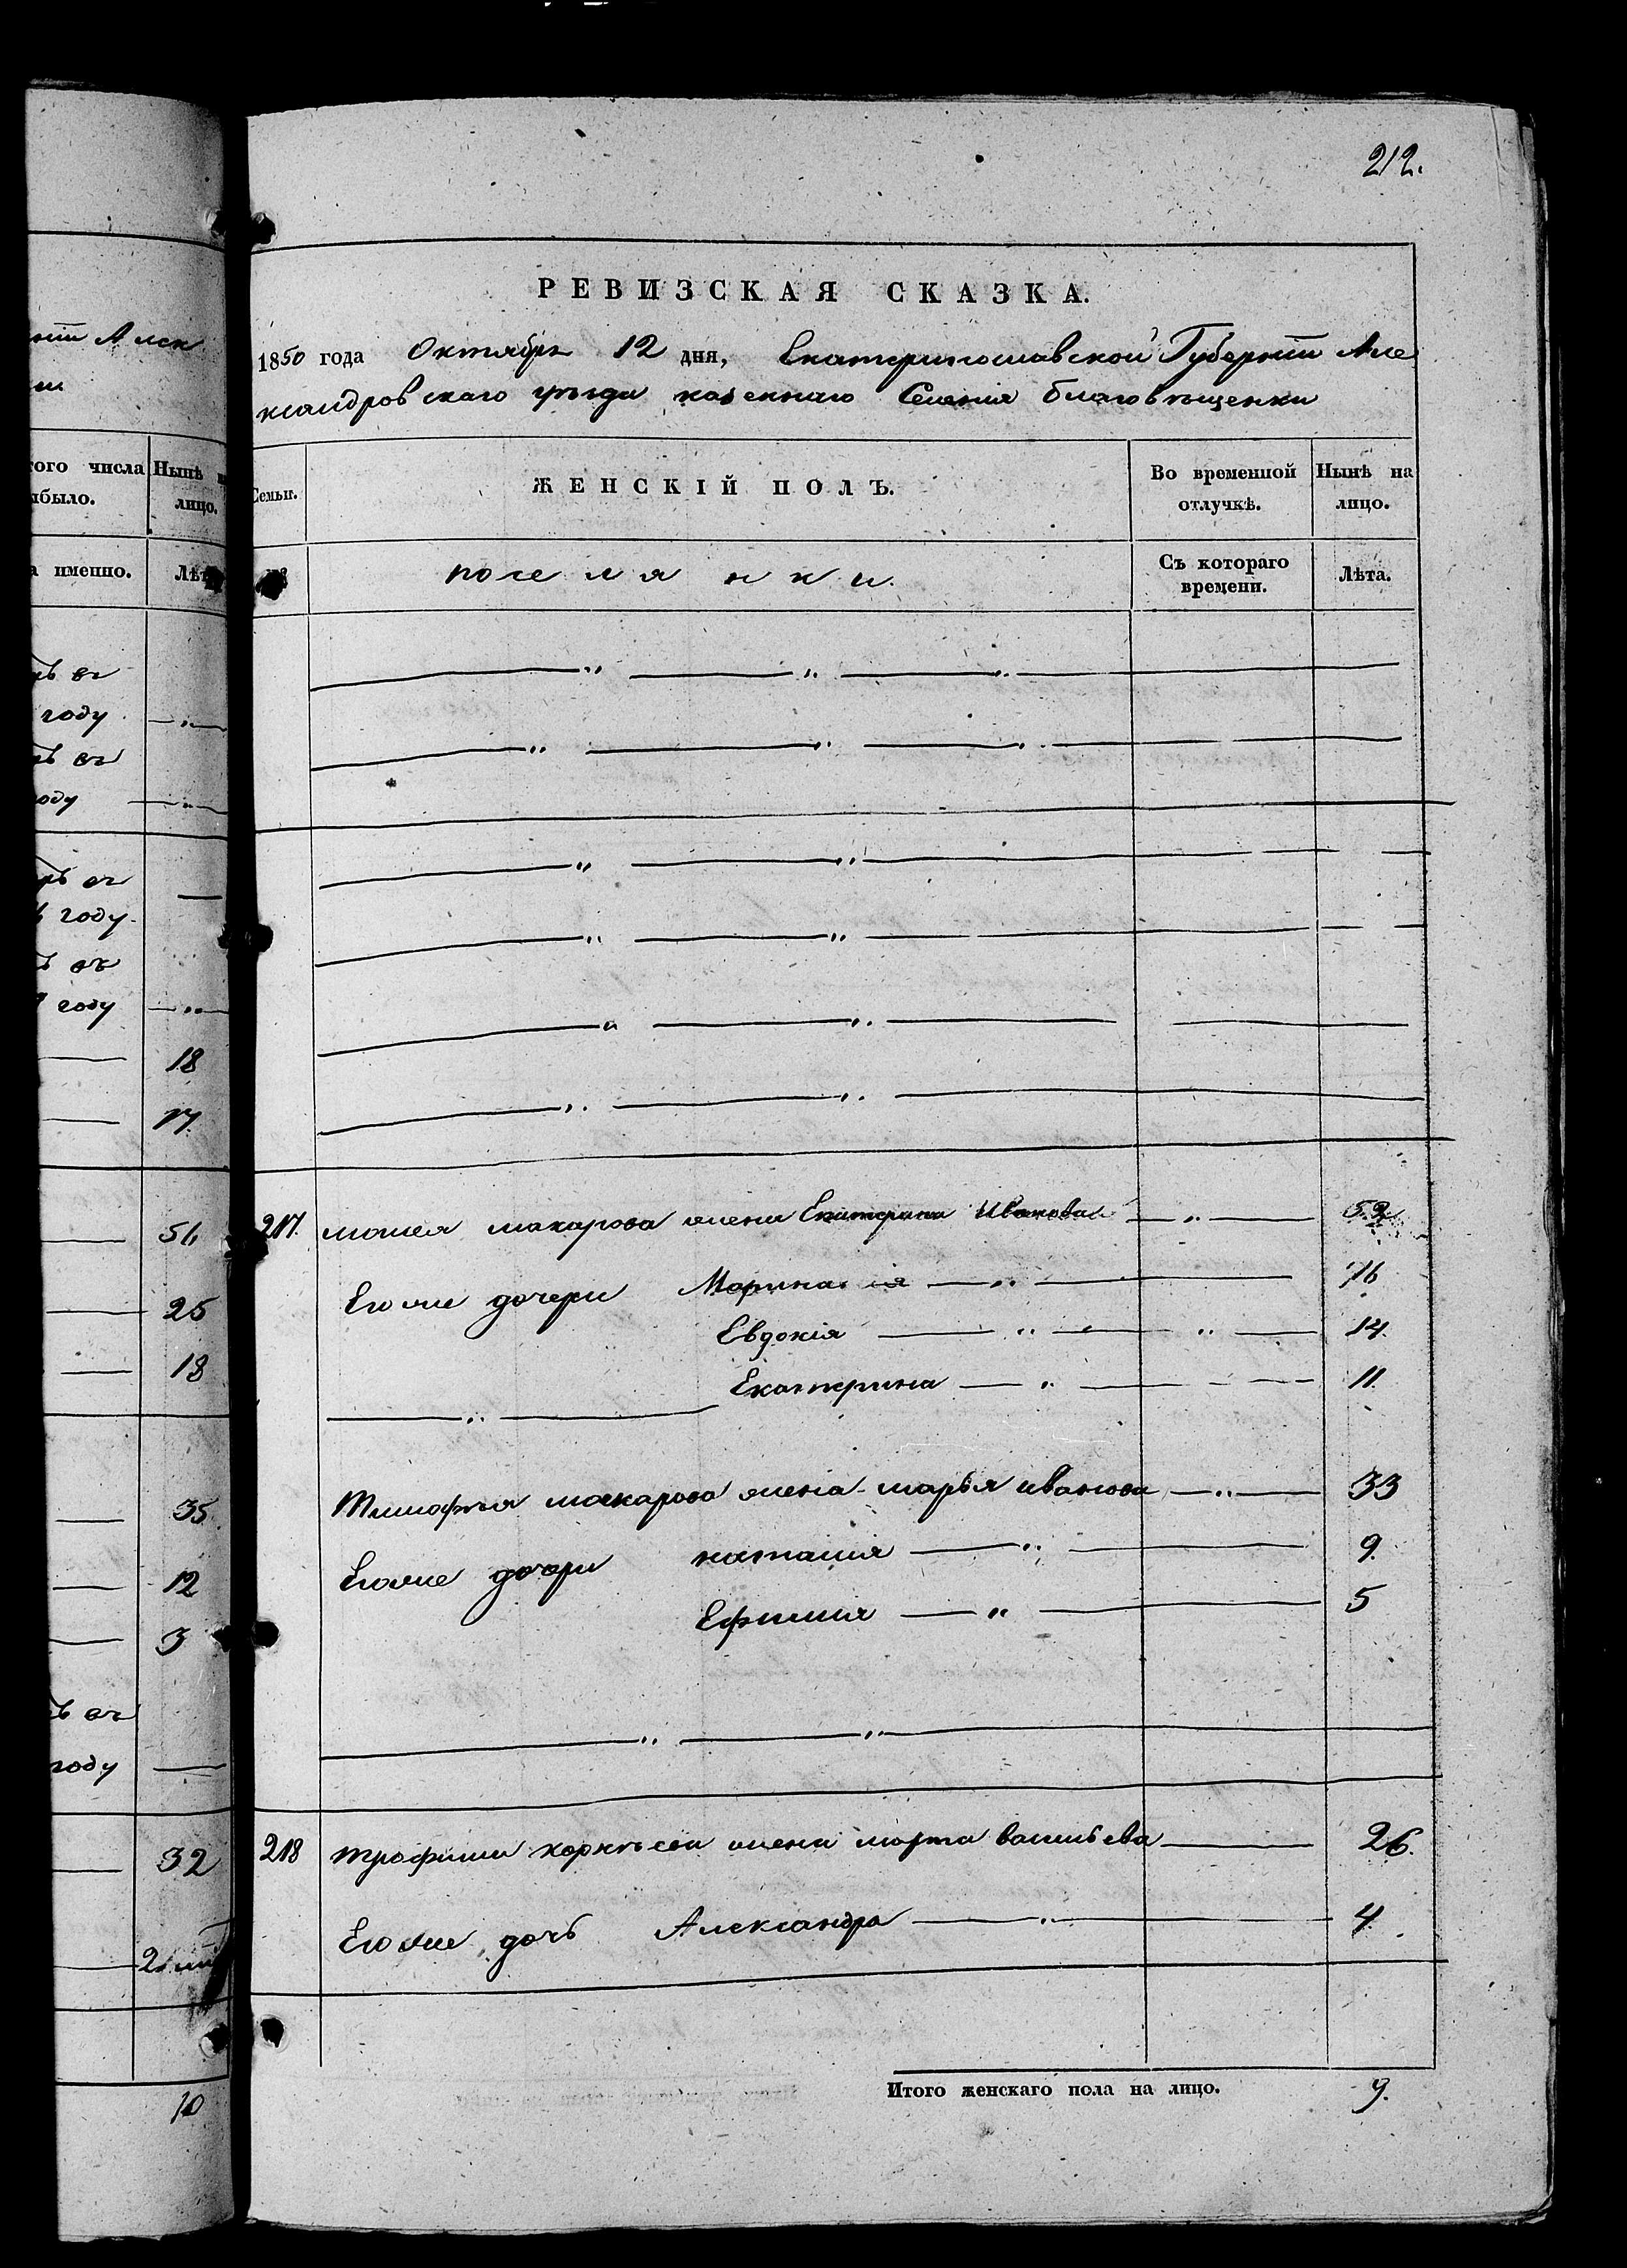 212.
РЕВИЗСКАЯ СКАЗКА.
1850 года Октября 12 дня, Екатеринославской Губерніи Але
ксандровскаго уѣзда казеннаго Селенія благовѣщенки
Семьи. ЖЕНСКІЙ ПОЛЪ. Во временной отлучкѣ. Нынѣ на лицо.
№ поселянки. Съ котораго времени. Лѣта.
217. макарова жена Екатерина Иванова 52
Его же дочери Марина 16
Евдокія 14.
Екатерина 11.
Тимофѣя макарова жена марья иванова 33
Его же дочери наталия 9.
Ефимия 5
218 трофима корнѣева жена марта васильева 26.
Его же дочь Александра 4.
Итого женскаго пола на лицо. 9.
того числа
Нынѣ
лицо.
именно.
году
году
году
18
17.
51,
25
18
35
12
3
году
32
10